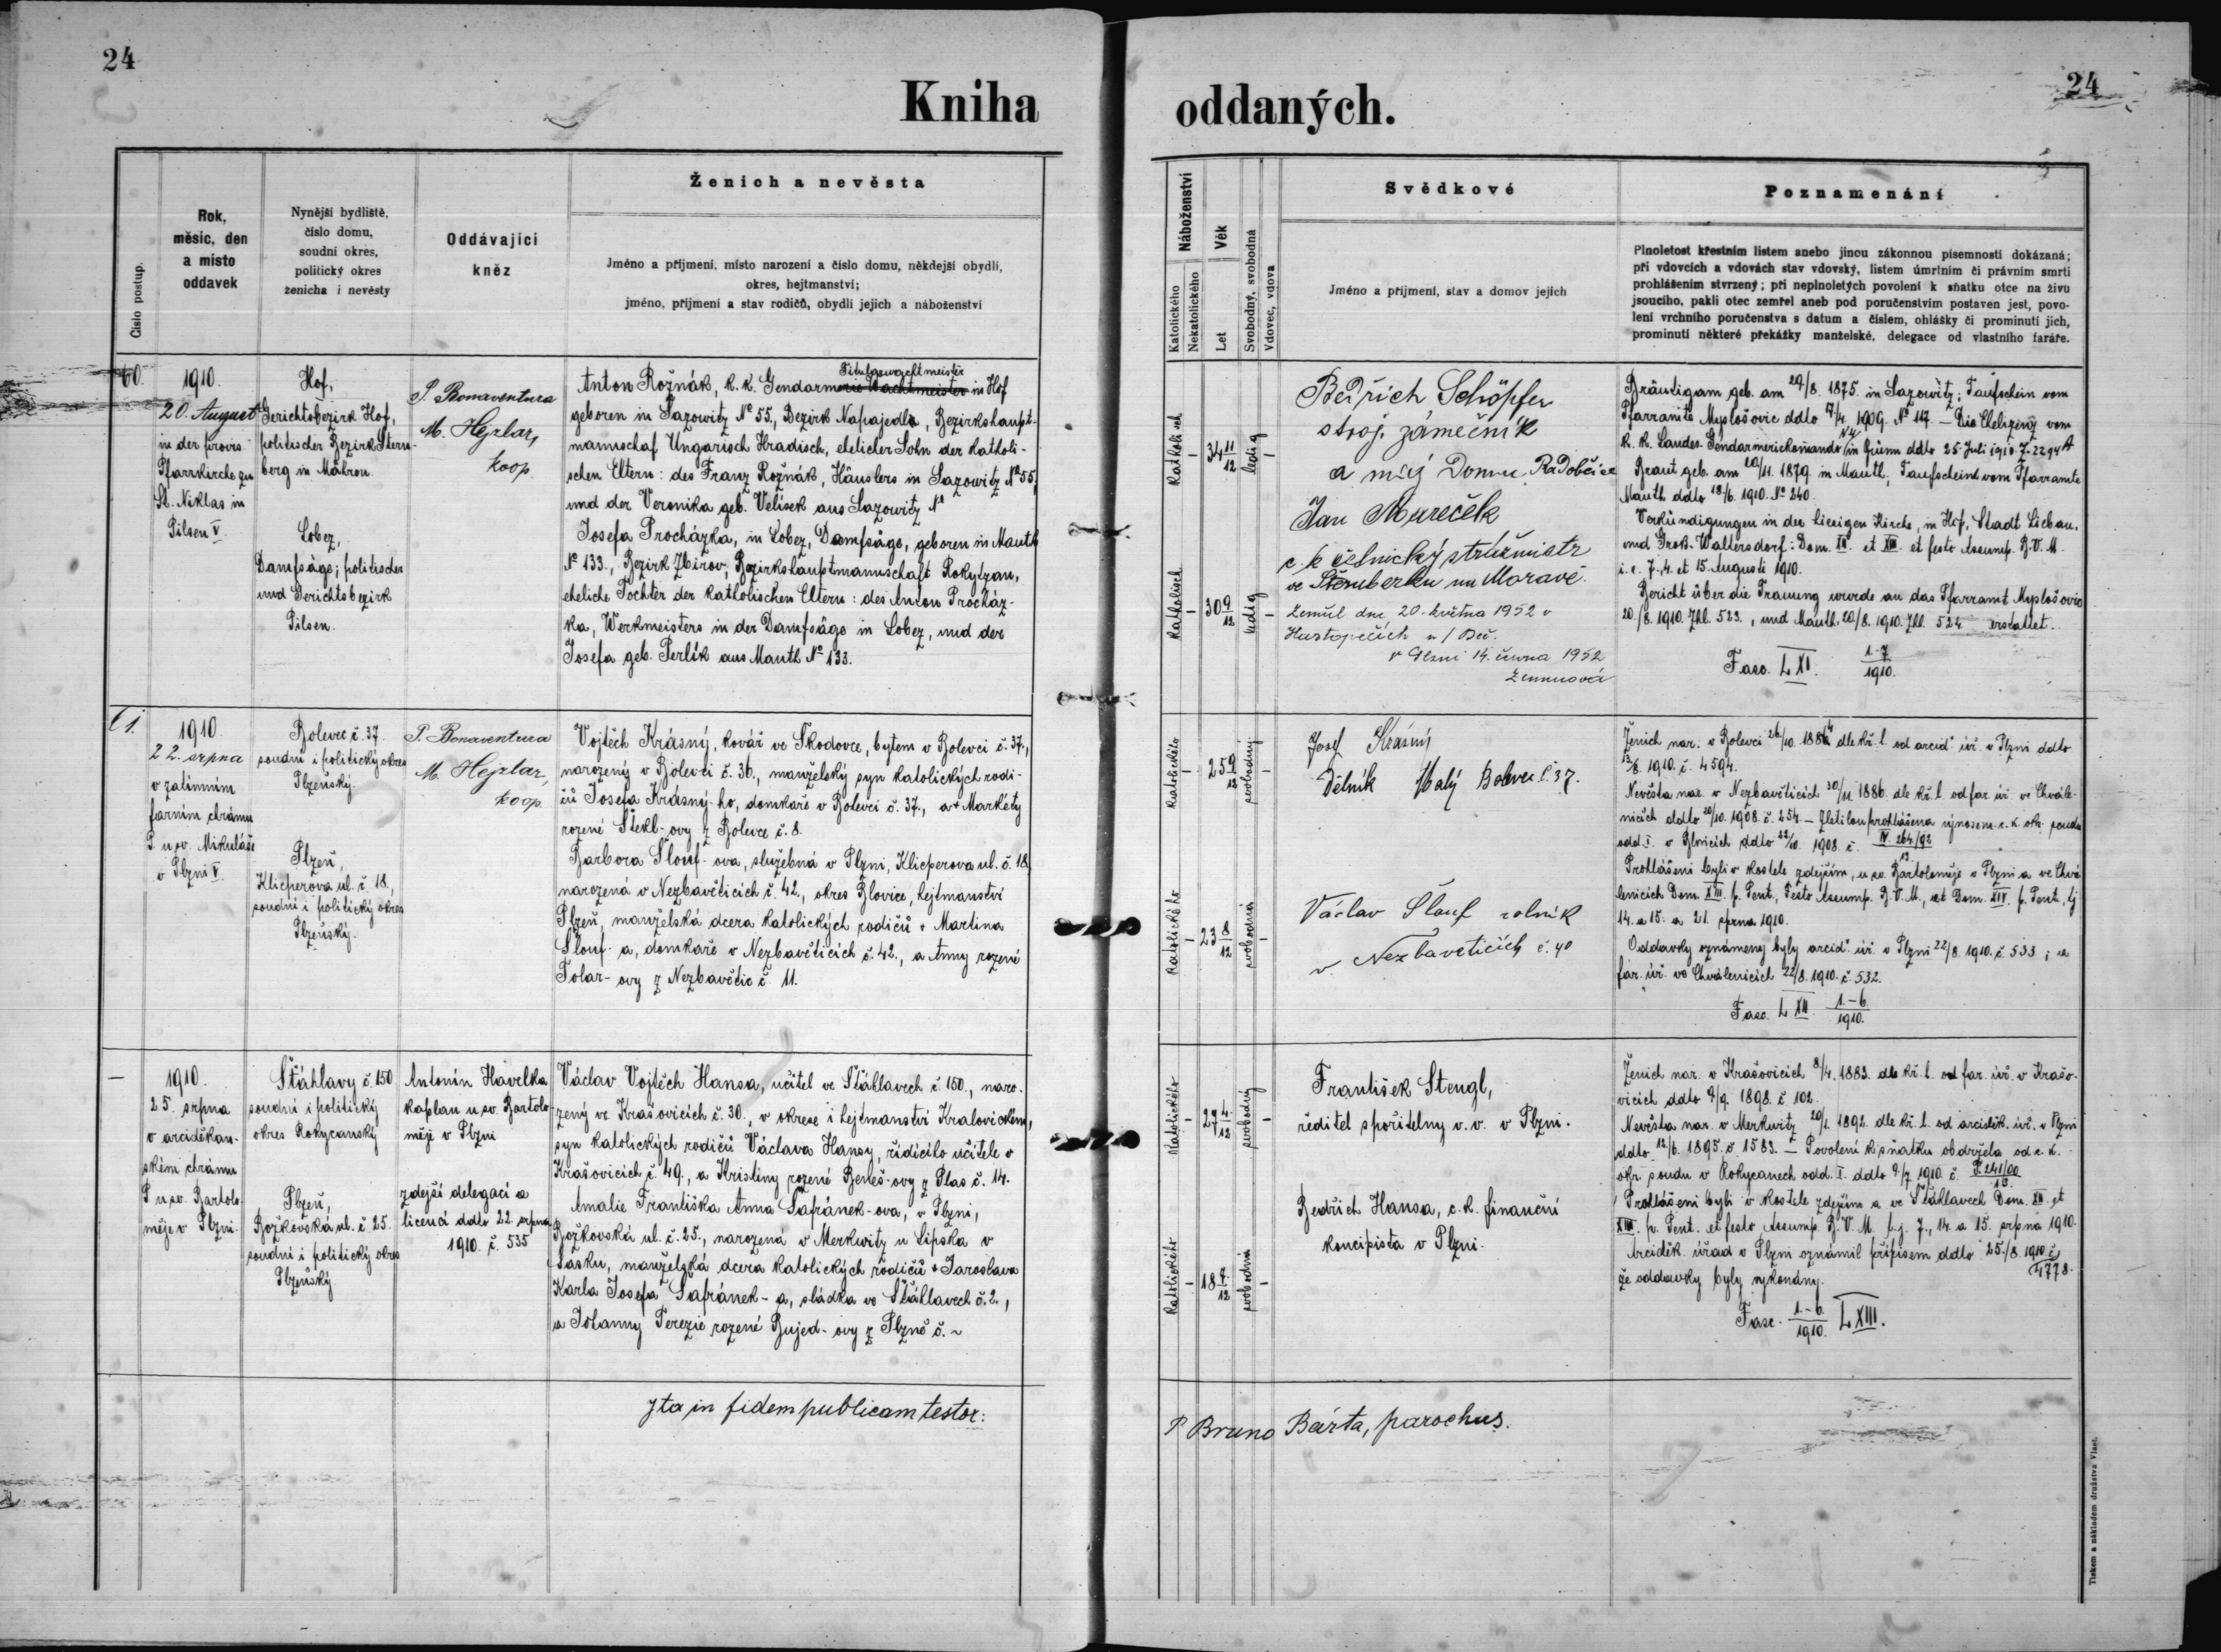 24
Kniha
Číslo postup.
Rok,
měsíc, den
a místo
oddavek
Nynější bydliště,
číslo domu,
soudní okres,
politický okres
ženicha i nevěsty
Oddávající
kněz
Ženich a nevěsta
Jméno a příjmení, místo narození a číslo domu, někdejší obydlí,
okres, hejtmanství;
jméno, příjmení a stav rodičů, obydlí jejich a náboženství
60.
1910.
20. August
in der provis.
Pfarrkirche zu
St. Niklas in
Pilsen V.
Hof,
Gerichtsbezirk Hof,
politischer Bezirk Stern-
berg in Mähren
Lobez,
Dampfsäge; politischer
und Gerichtsbezirk
Pilsen.
P. Bonaventura
M. Hejzlar,
koop.
Titularwachtmeister
Anton Rožnák, k. k. Gendarmerie Wachtmeister in Hof
geboren in Sazowitz No 55., Bezirk Napajedla, Bezirkshaupt-
mannschaf Ungarisch Hradisch, ehelicher Sohn der katholi-
schen Eltern: des Franz Rožnák, Häuslers in Sazowitz No 55,
und der Veronika geb. Velísek aus Sazowitz No
Josefa Procházka, in Lobez, Dampfsäge, geboren in Mauth
No 133., Bezirk Zbirov, Bezirkshauptmannschaft Rokytzan,
eheliche Tochter der katholischen Eltern: des Anton Procház-
ka, Werkmeisters in der Dampfsäge in Lobez, und der
Josefa geb. Perlík aus Mauth No 133.
61.
1910.
22. srpna
v zatímním
farním chrámu
P. u sv. Mikuláše
v Plzni V.
Bolevec č. 37
soudní i politický okres
Plzeňský.
Plzeň,
Klicperova ul. č. 18.,
soudní i politický okres
Plzeňský.
P. Bonaventura
M. Hejzlar,
koop.
Vojtěch Krásný, kovář ve Škodovce, bytem v Bolevci č. 37.,
narozený v Bolevci č. 36., manželský syn katolických rodi-
čů Josefa Krásný-ho, domkaře v Bolevci č. 37., a + Markéty
rozené Štekl-ovy z Bolevce č. 8.
Barbora Šlouf-ova, služebná v Plzni, Klicperova ul. č. 18,
narozená v Nezbavěticích č. 42., okres Blovice, hejtmanství
Plzeň, manželská dcera katolických rodičů + Martina
Šlouf-a, domkaře v Nezbavěticích č. 42., a Anny rozené
Tolar-ovy z Nezbavětic č. 11.
—
1910.
25. srpna
v arciděkan-
ském chrámu
P. u sv. Bartolo-
měje v Plzni.
Šťáhlavy č. 150
soudní i politický
okres Rokycanský
Plzeň,
Božkovská ul. č. 25.
soudní i politický okres
Plzeňský.
Antonín Havelka
kaplan u sv. Bartolo-
měje v Plzni
zdejší delegací a
licencí ddto 22. srpna
1910. č. 535
Václav Vojtěch Hansa, učitel ve Šťáhlavech č. 150., naro-
zený ve Krašovicích č. 30., v okrese i hejtmanství Kralovickém,
syn katolických rodičů Václava Hansy, řídícího učitele v
Krašovicích č. 49., a Kristiny rozené Beneš-ovy z Plas č. 14.
Amalie Františka Anna Šafránek-ova, v Plzni,
Božkovská ul. č. 25., narozená v Merkwitz u Lipska v
Sasku, manželská dcera katolických rodičů + Jaroslava
Karla Josefa Šafránek-a, sládka ve Šťáhlavech č. 2.,
a Johanny Terezie rozené Bujed-ovy z Plzně č. ~
Ita in fidem publicam testor:
24
oddaných.
Náboženství
Katolického
Nekatolického
Věk
Let
Svobodný, svobodná
Vdovec, vdova
Svědkové
Jméno a příjmení, stav a domov jejich
Poznamenání
Plnoletost křestním listem anebo jinou zákonnou písemností dokázaná;
při vdovcích a vdovách stav vdovský, listem úmrtním či právním smrti
prohlášením stvrzený; při neplnoletých povolení k sňatku otce na živu
jsoucího, pakli otec zemřel aneb pod poručenstvím postaven jest, povo-
lení vrchního poručenstva s datum a číslem, ohlášky či prominutí jich,
prominutí některé překážky manželské, delegace od vlastního faráře.
Katholisch
34 11/12
ledig
Katholisch
30 9/12
ledig
Bedřich Schöpfer
stroj. zámečník
a měj Domu Radobčice
Jan Mareček
c. k. četnický strážmistr
ve Šternberku na Moravě.
Zemřel dne 20. května 1952 v
Hustopečích n / Beč.
v Plzni 14. června 1952
Bräutigam geb. am 29/8. 1875. in Sazowitz; Taufschein vom
Pfarramte Myslošovic ddto 7/4. 1909. No 117. —
k. k. Landes-Gendarmeriekomando No 4 in Brünn ddto 25. Juli 1910. Z. 2294
Braut geb. am 20/11. 1879. in Mauth, Taufschein vom Pfarramte
Mauth ddto 18/6. 1910. No 240.
Verkündigungen in der hiesigen Kirche, in Hof, Stadt Liebau,
und Gross-Waltersdorf: Dom. XII. et XIII. et festo Assump. B. V. M.
i. e. 7., 14. et 15. Augusti 1910.
Bericht über die Trauung wurde an das Pfarramt Myslošovic
20./8. 1910. Zhl. 523., und Mauth 20/8. 1910. Zhl. 524 erstattet.
Fasc. LXI. 1-7/1910.
Katolického
25 9/12
svobodný
Katolického
23 8/12
svobodná
Josef Krásný
Dělník Malý Bolevec č. 37.
Václav Šlouf rolník
v Nezbavěticích č. 40
Ženich nar. v Bolevci 26/10. 1884 dle kř. l. od arcid. úř. v Plzni ddto
13/8. 1910. č. 4594.
Nevěsta nar. v Nezbavěticích 30/11. 1886. dle kř. l. od far. úř. ve Chvále-
nicích ddto 20/10. 1908. č. 254. — Zletilou prohlášena výnosem c. k. okr. soudu
odd. I. v Blovicích ddto 22/10. 1908. č. IV 264/92
13
Prohlášeni byli v kostele zdejším, u sv. Bartoloměje v Plzni a ve Chvá-
lenicích Dom. XIII. p. Pent., Festo Assump. B. V. M., et Dom. XIV. p. Pent., tj
14. a 15. a 21. srpna 1910.
Oddavky oznámeny byly arcid. úř. v Plzni 22/8. 1910. č. 533; a
far. úř. ve Chválenicích 22/8. 1910. č. 532.
Fasc. LXII. 1-6/1910.
Katolického
27 4/12
svobodný
Katolického
18 7/12
svobodná
František Stengl,
ředitel spořitelny v. v. v Plzni.
Bedřich Hansa, c. k. finanční
koncipista v Plzni.
Ženich nar. v Krašovicích 8/4. 1883. dle kř. l. od far. úř. v Krašo-
vicích ddto 4/9. 1898. č. 102.
Nevěsta nar. v Merkwitz 20/1. 1892. dle kř. l. od arciděk. úř. v Plzni
ddto 12/6. 1895. č. 1583. — Povolení k sňatku obdržela od c. k.
okr. soudu v Rokycanech odd. I. ddto 9/7 1910. č. P. 241/00
13.
Prohlášeni byli v kostele zdejším a ve Šťáhlavech Dom. XII. et
XIII. p. Pent. et festo Assump. B. V. M. t. j. 7., 14. a 15. srpna 1910.
Arciděk. úřad v Plzni oznámil přípisem ddto 25./8. 1910. č.
4778.
že oddavky byly vykonány.
Fasc. 1-6/1910. LXIII.
P. Bruno Bárta, parochus.
Tiskem a nákladem družstva Vlast.